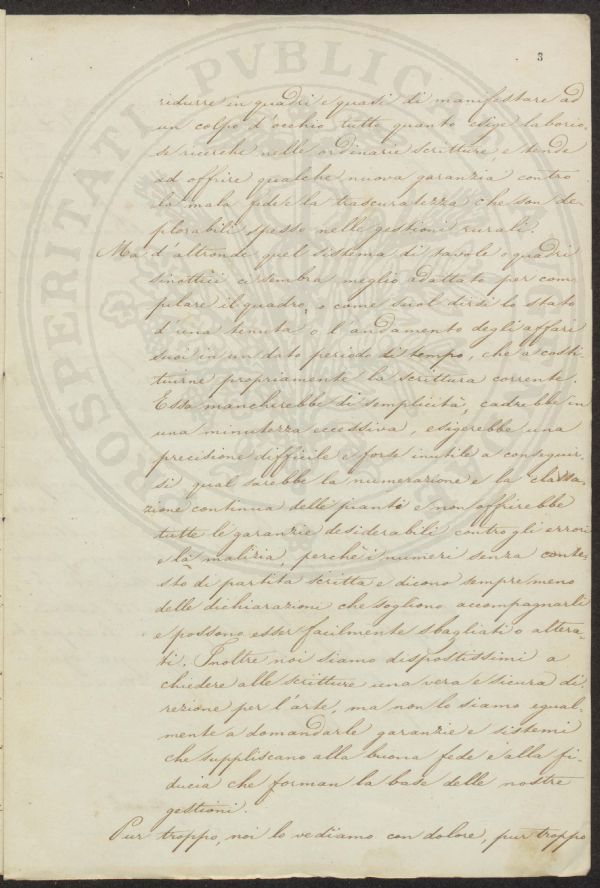 3
ridurre in quadri e quasi di manifestare ad
un colpo d'occhio tutto quanto esige laborio,
se ricerche nelle ordinarie scritture, e tende
ad offrire qualche nuova garanzia contro
la mala fede e la trascuratezza che son de-
plorabili spesso nelle gestioni rurali.
Ma d'altronde quel sistema di tavole o quadri
sinottici ci sembra meglio adattato per com,
pulare il quadro, o come suol dirsi lo stato
d'una tenuta o l'andamento degli affari
suoi in un dato periodo di tempo, che a costi,
tuirne propriamente la scrittura corrente.
Esso mancherebbe di semplicità, cadrebbe in
una minutezza eccessiva, esigerebbe una
precisione difficile e forse inutile a conseguir,
si qual sarebbe la numerazione e la classa,
zione continua delle piante e non offrirebbe
tutte le garanzie desiderabili contro gli errori
e la malizia, perchè i numeri senza conte-
sto di partita scritta e dicono sempre meno
delle dichiarazioni che sogliono accompagnarli
e possono esser facilmente sbagliati o altera-
ti. Inoltre noi siamo dispostissimi a
chiedere alle scritture una vera e sicura di,
rezione per l'arte, ma non lo siamo egual-
mente a domandarle garanzie e sistemi
che suppliscano alla buona fede e alla fi-
ducia che forman la base delle nostre
gestioni.
Pur troppo, noi lo vediamo con dolore, pur troppo
PROSPERITATI PVBLICAE